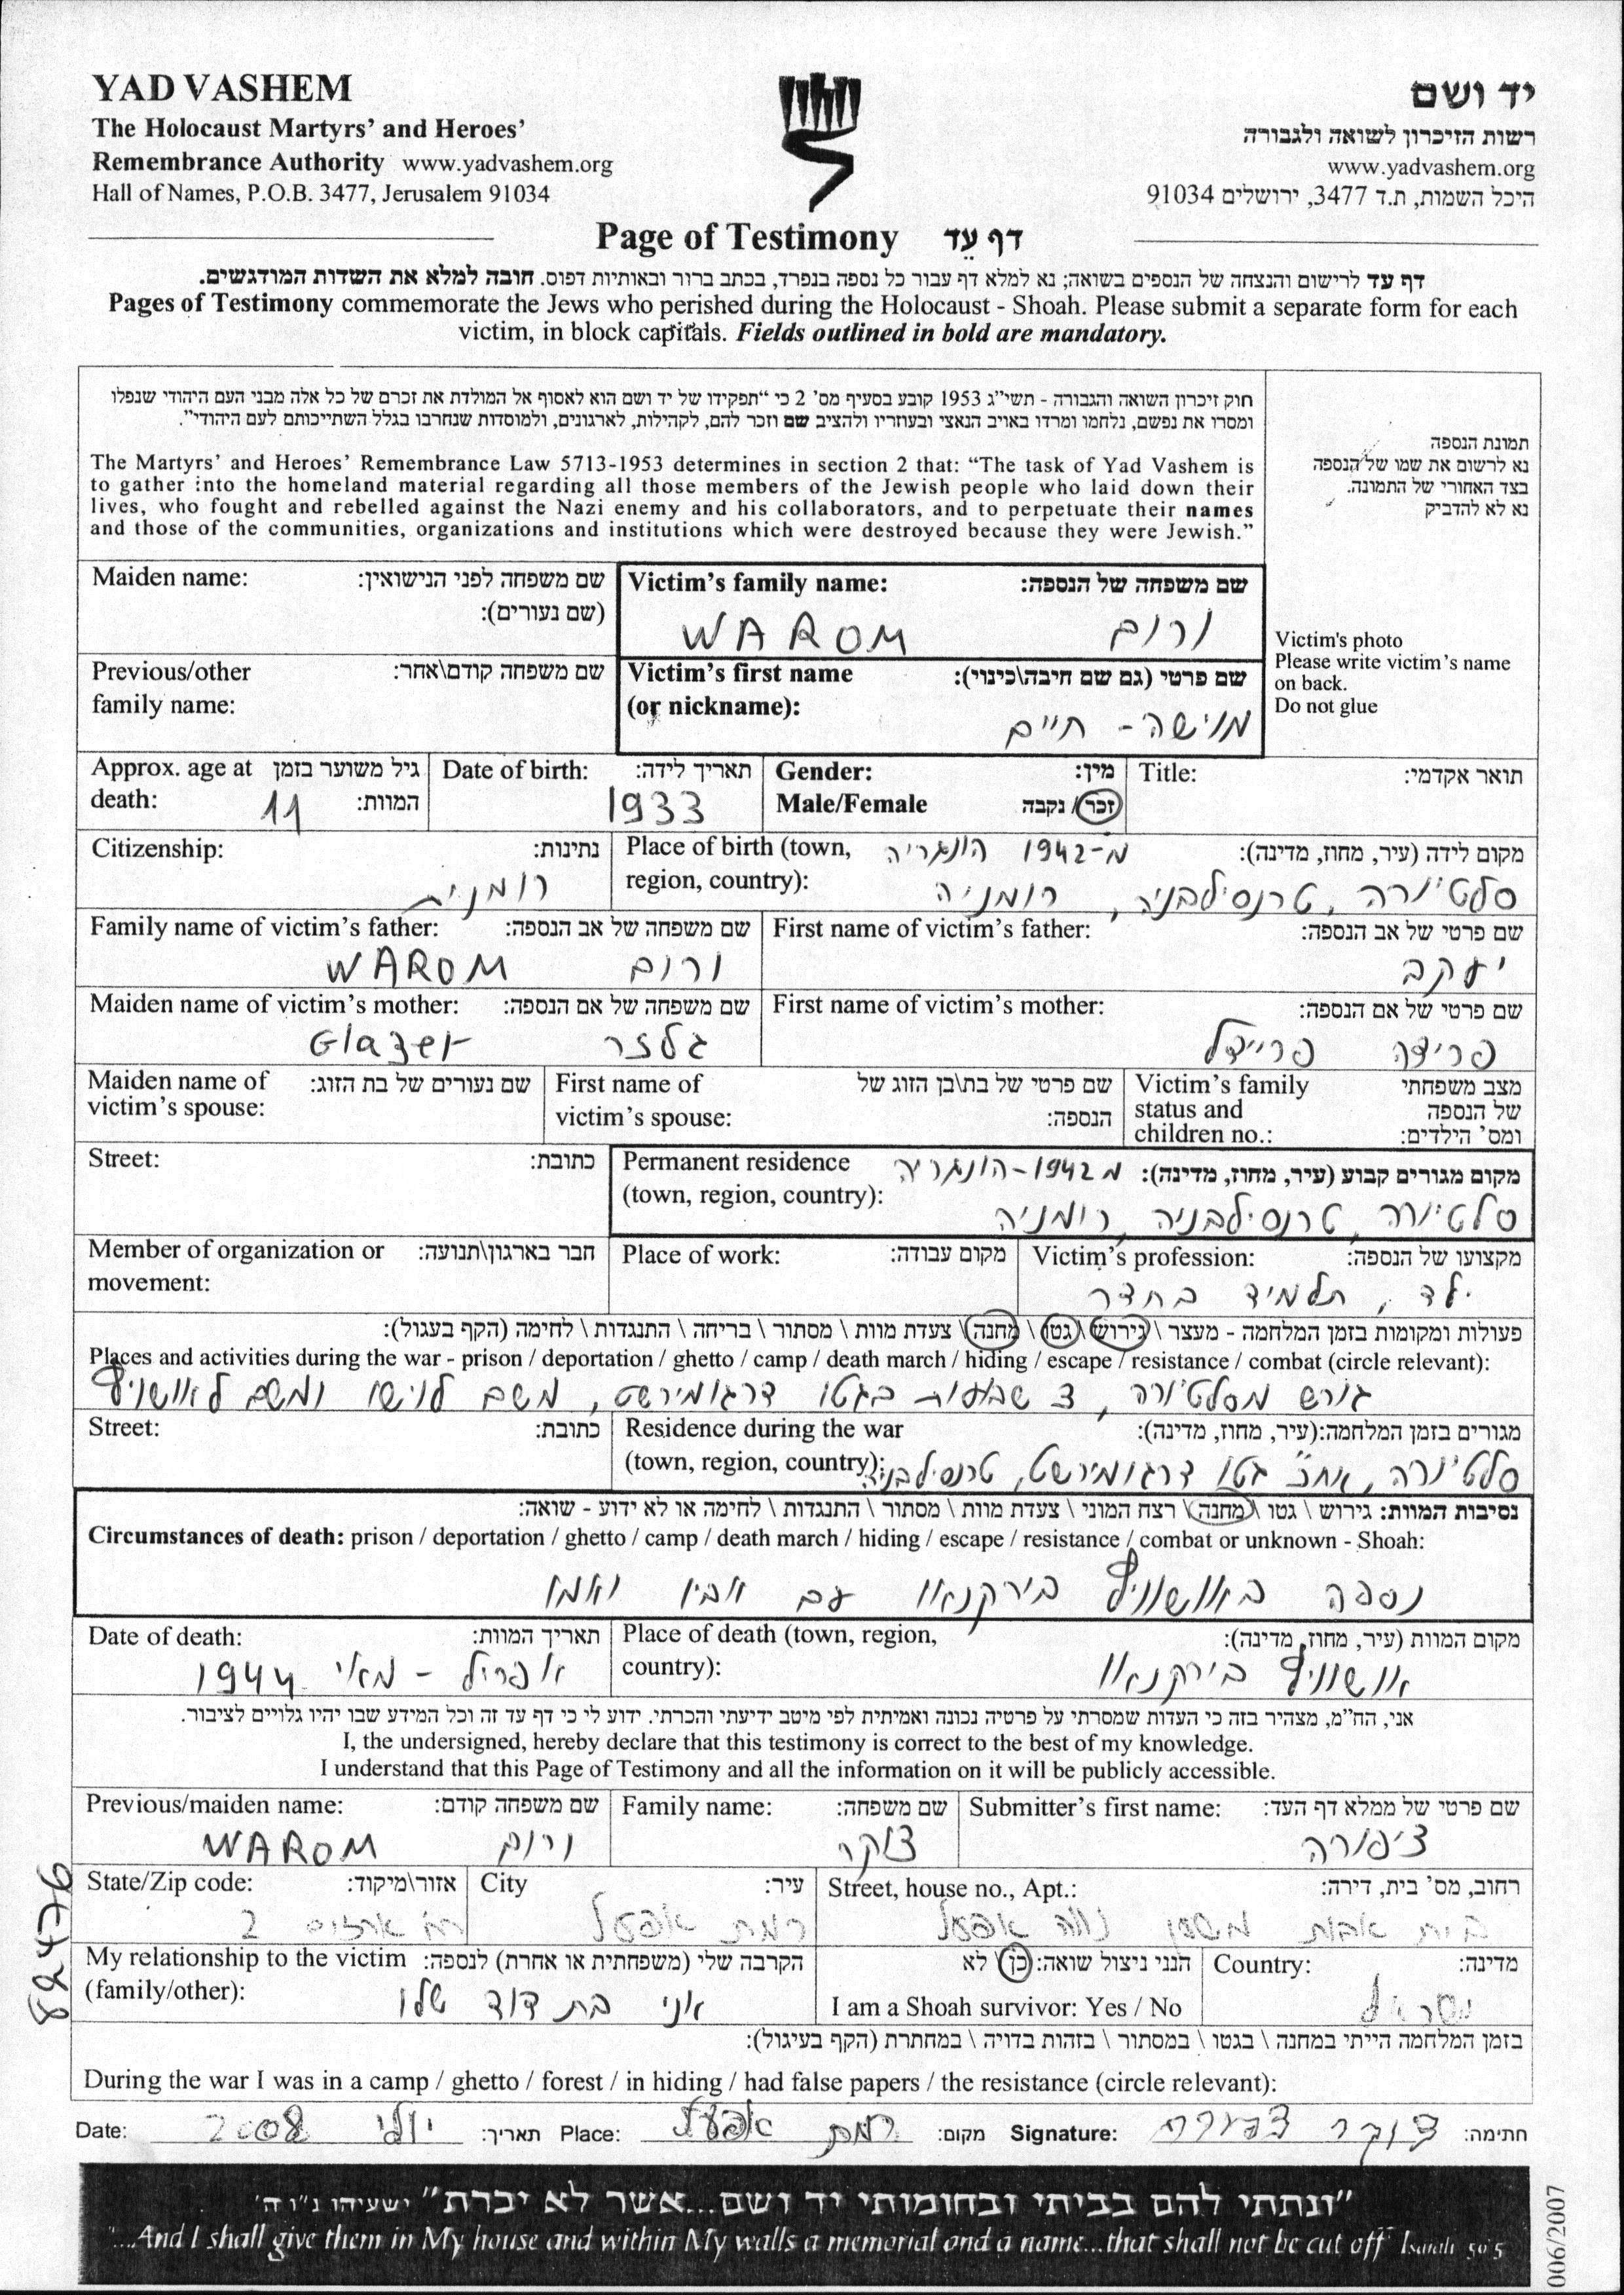 YAD VASHEM
The Holocaust Martyrs' and Heroes'
Remembrance Authority www.yadvashem.org
Hall of Names, P.O.B. 3477, Jerusalem 91034
יד ושם
רשות הזיכרון לשואה ולגבורה
www.yadvashem.org
היכל השמות, ת.ד 3477, ירושלים 91034
Page of Testimony דף עד
דף עד לרישום והנצחה של הנספים בשואה; נא למלא דף עבור כל נספה בנפרד, בכתב ברור ובאותיות דפוס. חובה למלא את השדות המודגשים.
Pages of Testimony commemorate the Jews who perished during the Holocaust - Shoah. Please submit a separate form for each
victim, in block capitals. Fields outlined in bold are mandatory.
חוק זיכרון השואה והגבורה - תשי"ג 1953 קובע בסעיף מס' 2 כי "תפקידו של יד ושם הוא לאסוף אל המולדת את זכרם של כל אלה מבני העם היהודי שנפלו
ומסרו את נפשם, נלחמו ומרדו באויב הנאצי ובעוזריו ולהציב שם וזכר להם, לקהילות, לארגונים, ולמוסדות שנחרבו בגלל השתייכותם לעם היהודי".
The Martyrs' and Heroes' Remembrance Law 5713-1953 determines in section 2 that: "The task of Yad Vashem is
to gather into the homeland material regarding all those members of the Jewish people who laid down their
lives, who fought and rebelled against the Nazi enemy and his collaborators, and to perpetuate their names
and those of the communities, organizations and institutions which were destroyed because they were Jewish."
תמונת הנספה
נא לרשום את שמו של הנספה
בצד האחורי של התמונה.
נא לא להדביק
Victim's photo
Please write victim's name
on back.
Do not glue
Maiden name: שם משפחה לפני הנישואין:
(שם נעורים):
Victim's family name: שם משפחה של הנספה:
WAROM ורום
Previous/other שם משפחה קודם\אחר:
family name:
Victim's first name שם פרטי (גם שם חיבה\כינוי):
(or nickname):
מוישה - חיים
Approx. age at גיל משוער בזמן
death: המוות:
11
Date of birth: תאריך לידה:
1933
Gender: מין:
Male/Female זכר / נקבה
Title: תואר אקדמי:
Citizenship: נתינות:
רומנית
Place of birth (town, מקום לידה (עיר, מחוז, מדינה):
region, country):
מ-1942 הונגריה
סלטיורה, טרנסילבניה, רומניה
Family name of victim's father: שם משפחה של אב הנספה:
WAROM ורום
First name of victim's father: שם פרטי של אב הנספה:
יעקב
Maiden name of victim's mother: שם משפחה של אם הנספה:
Glazer גלזר
First name of victim's mother: שם פרטי של אם הנספה:
פרידה פריידל
Maiden name of שם נעורים של בת הזוג:
victim's spouse:
First name of שם פרטי של בת\בן הזוג של
victim's spouse: הנספה:
Victim's family מצב משפחתי
status and של הנספה
children no.: ומס' הילדים:
Street: כתובת:
Permanent residence מקום מגורים קבוע (עיר, מחוז, מדינה):
(town, region, country):
מ 1942-הונגריה
סלטיורה, טרנסילבניה, רומניה
Member of organization or חבר בארגון\תנועה:
movement:
Place of work: מקום עבודה:
Victim's profession: מקצועו של הנספה:
ילד, תלמיד בחדר
פעולות ומקומות בזמן המלחמה - מעצר \ גירוש \ גטו \ מחנה \ צעדת מוות \ מסתור \ בריחה \ התנגדות \ לחימה (הקף בעגול):
Places and activities during the war - prison / deportation / ghetto / camp / death march / hiding / escape / resistance / combat (circle relevant):
גורש מסלטיורה, 3 שבועות בגטו דרגומירשט, משם לוישו ומשם לאושויץ
Street: כתובת:
Residence during the war מגורים בזמן המלחמה:(עיר, מחוז, מדינה):
(town, region, country):
סלטיורה, אח"כ גטו דרגומירשט, טרנסילבניה
נסיבות המוות: גירוש \ גטו \ מחנה \ רצח המוני \ צעדת מוות \ מסתור \ התנגדות \ לחימה או לא ידוע - שואה:
Circumstances of death: prison / deportation / ghetto / camp / death march / hiding / escape / resistance / combat or unknown - Shoah:
נספה באושוויץ בירקנאו עם אביו ואמו
Date of death: תאריך המוות:
אפריל - מאי 1944
Place of death (town, region, מקום המוות (עיר, מחוז, מדינה):
country):
אושוויץ בירקנאו
אני, הח"מ, מצהיר בזה כי העדות שמסרתי על פרטיה נכונה ואמיתית לפי מיטב ידיעתי והכרתי. ידוע לי כי דף עד זה וכל המידע שבו יהיו גלויים לציבור.
I, the undersigned, hereby declare that this testimony is correct to the best of my knowledge.
I understand that this Page of Testimony and all the information on it will be publicly accessible.
Previous/maiden name: שם משפחה קודם:
WAROM ורום
Family name: שם משפחה:
צוקר
Submitter's first name: שם פרטי של ממלא דף העד:
ציפורה
State/Zip code: אזור\מיקוד:
רח' ארזים 2
City עיר:
רמת אפעל
Street, house no., Apt.: רחוב, מס' בית, דירה:
בית אבות משען נווה אפעל
My relationship to the victim הקרבה שלי (משפחתית או אחרת) לנספה:
(family/other):
אני בת דוד שלו
הנני ניצול שואה: כן \ לא
I am a Shoah survivor: Yes / No
Country: מדינה:
ישראל
בזמן המלחמה הייתי במחנה \ בגטו \ במסתור \ בזהות בדויה \ במחתרת (הקף בעיגול):
During the war I was in a camp / ghetto / forest / in hiding / had false papers / the resistance (circle relevant):
Date: יולי 2008 תאריך: Place: רמת אפעל מקום: Signature: צוקר ציפורה חתימה:
"ונתתי להם בביתי ובחומותי יד ושם...אשר לא יכרת" ישעיהו נ"ו ה'
"...And I shall give them in My house and within My walls a memorial and a name...that shall not be cut off" Isaiah 56 5
82476
006/2007